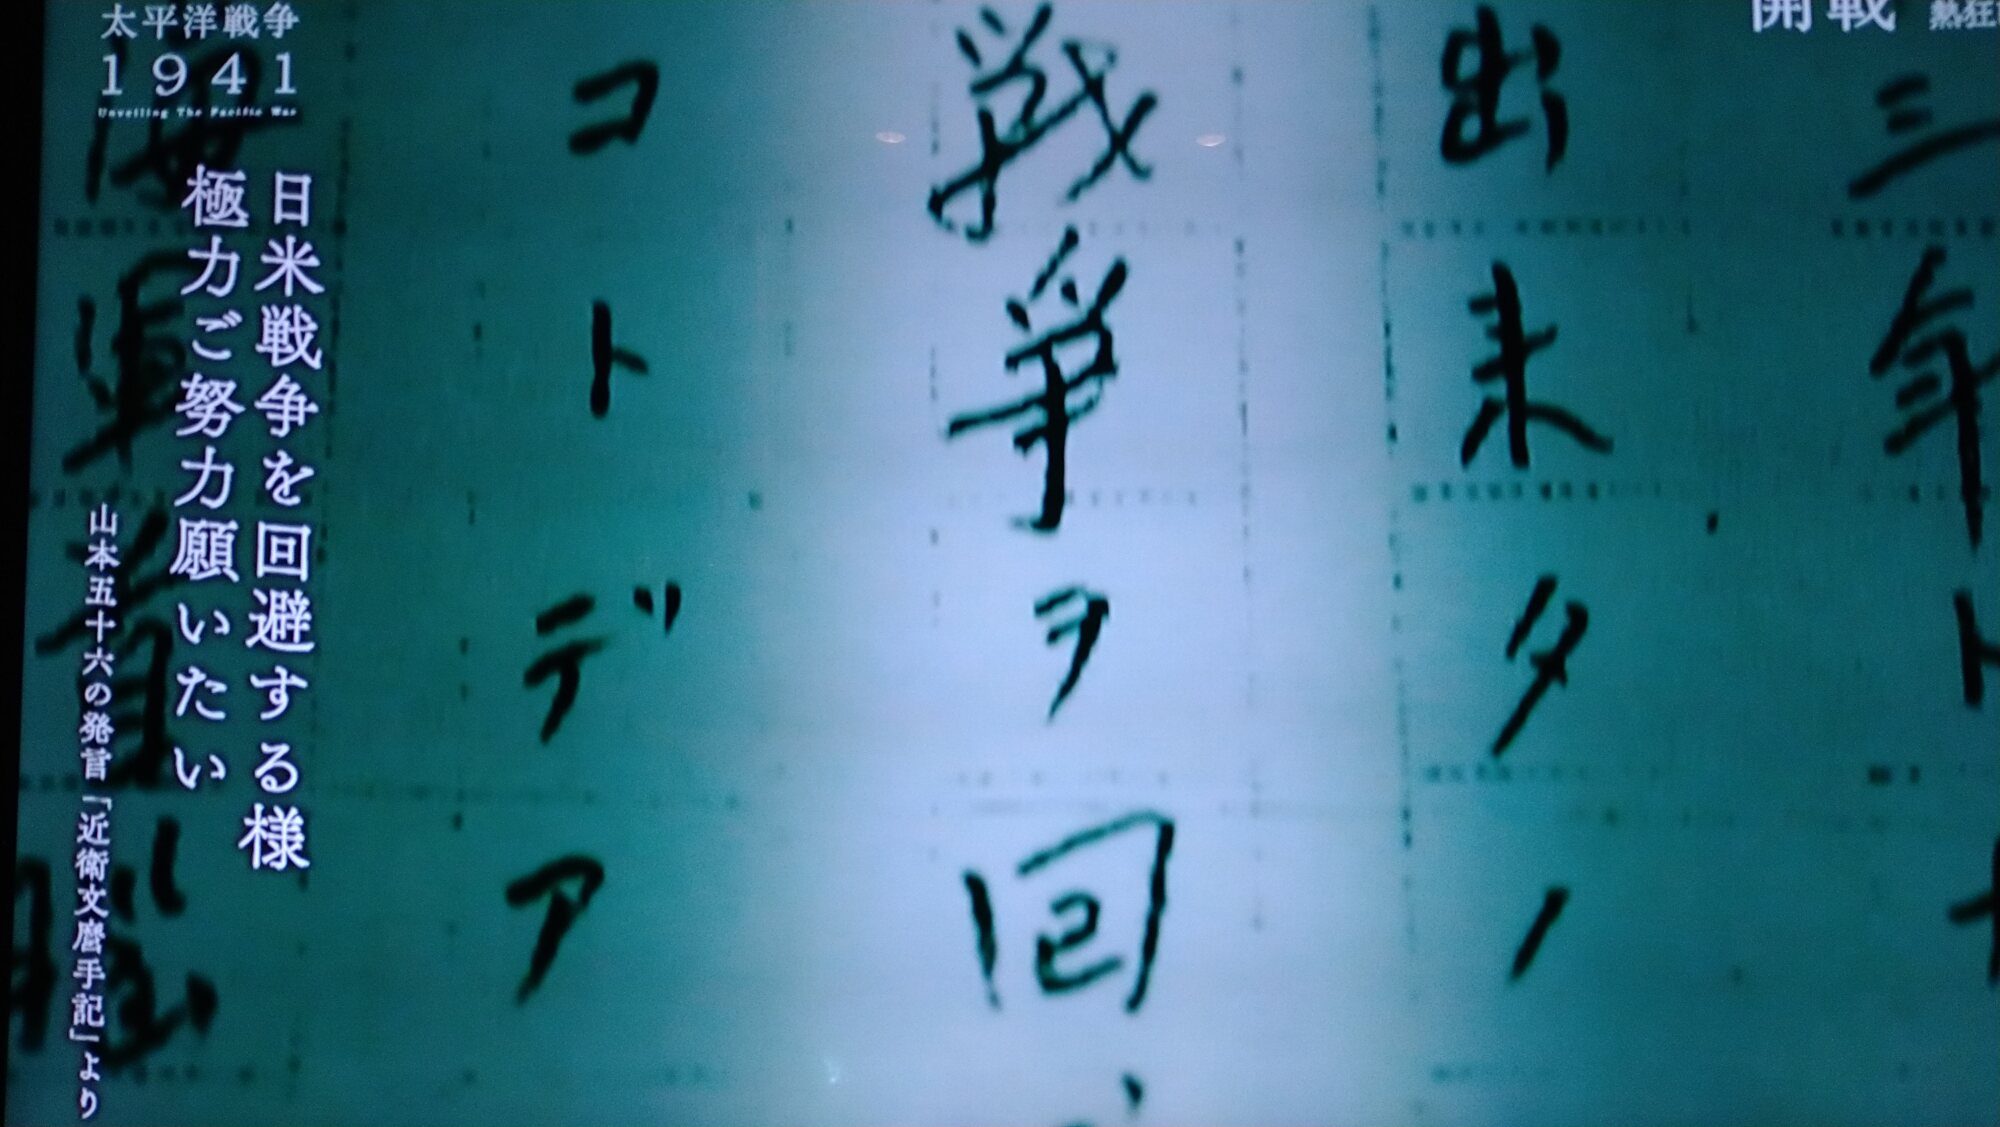 太平洋戦争
1941
Unveiling The Pacific War
開戦 熱狂
日米戦争を回避する様
極力ご努力願いたい
山本五十六の発言「近衛文麿手記」より
三年ト
出来タノ
戦争ヲ回
コトデア
海軍首脳